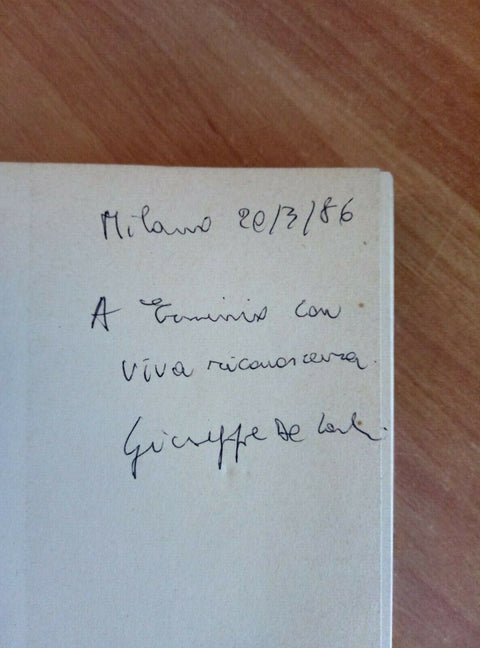 Milano 20/3/86
A con
viva riconoscenza.
Giuseppe De Carli